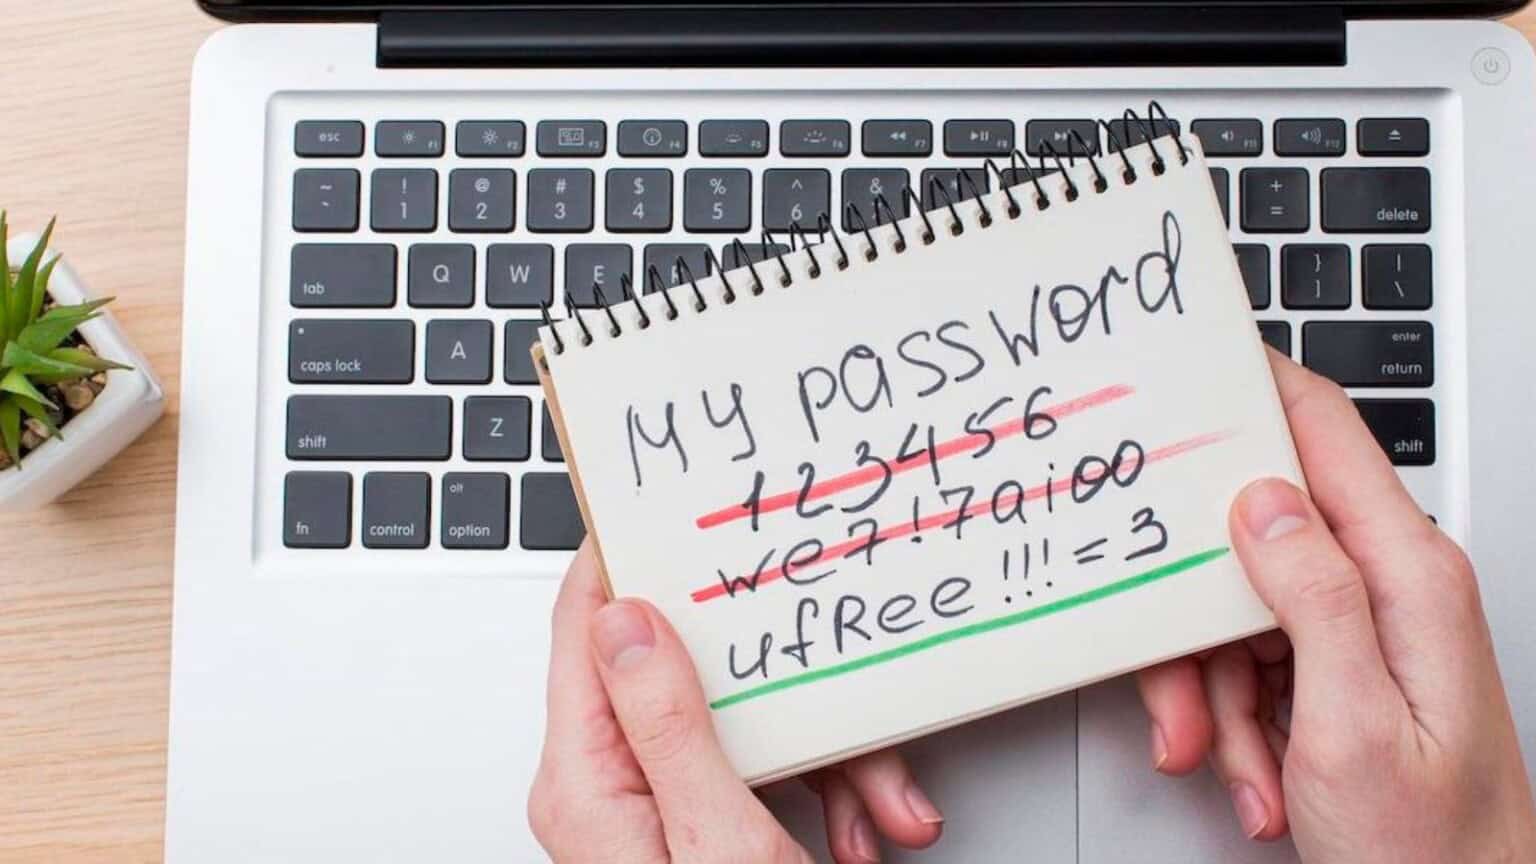 esc F1 F2 F3 F4 F5 F6 F7 F8 F11 F12
~ ` ! 1 @ 2 # 3 $ 4 % 5 ^ 6 & + = delete
tab Q W E } ] | \
caps lock A enter return
shift Z shift
fn control alt option
My password
123456
we7!7aioo
ufRee!!!=3